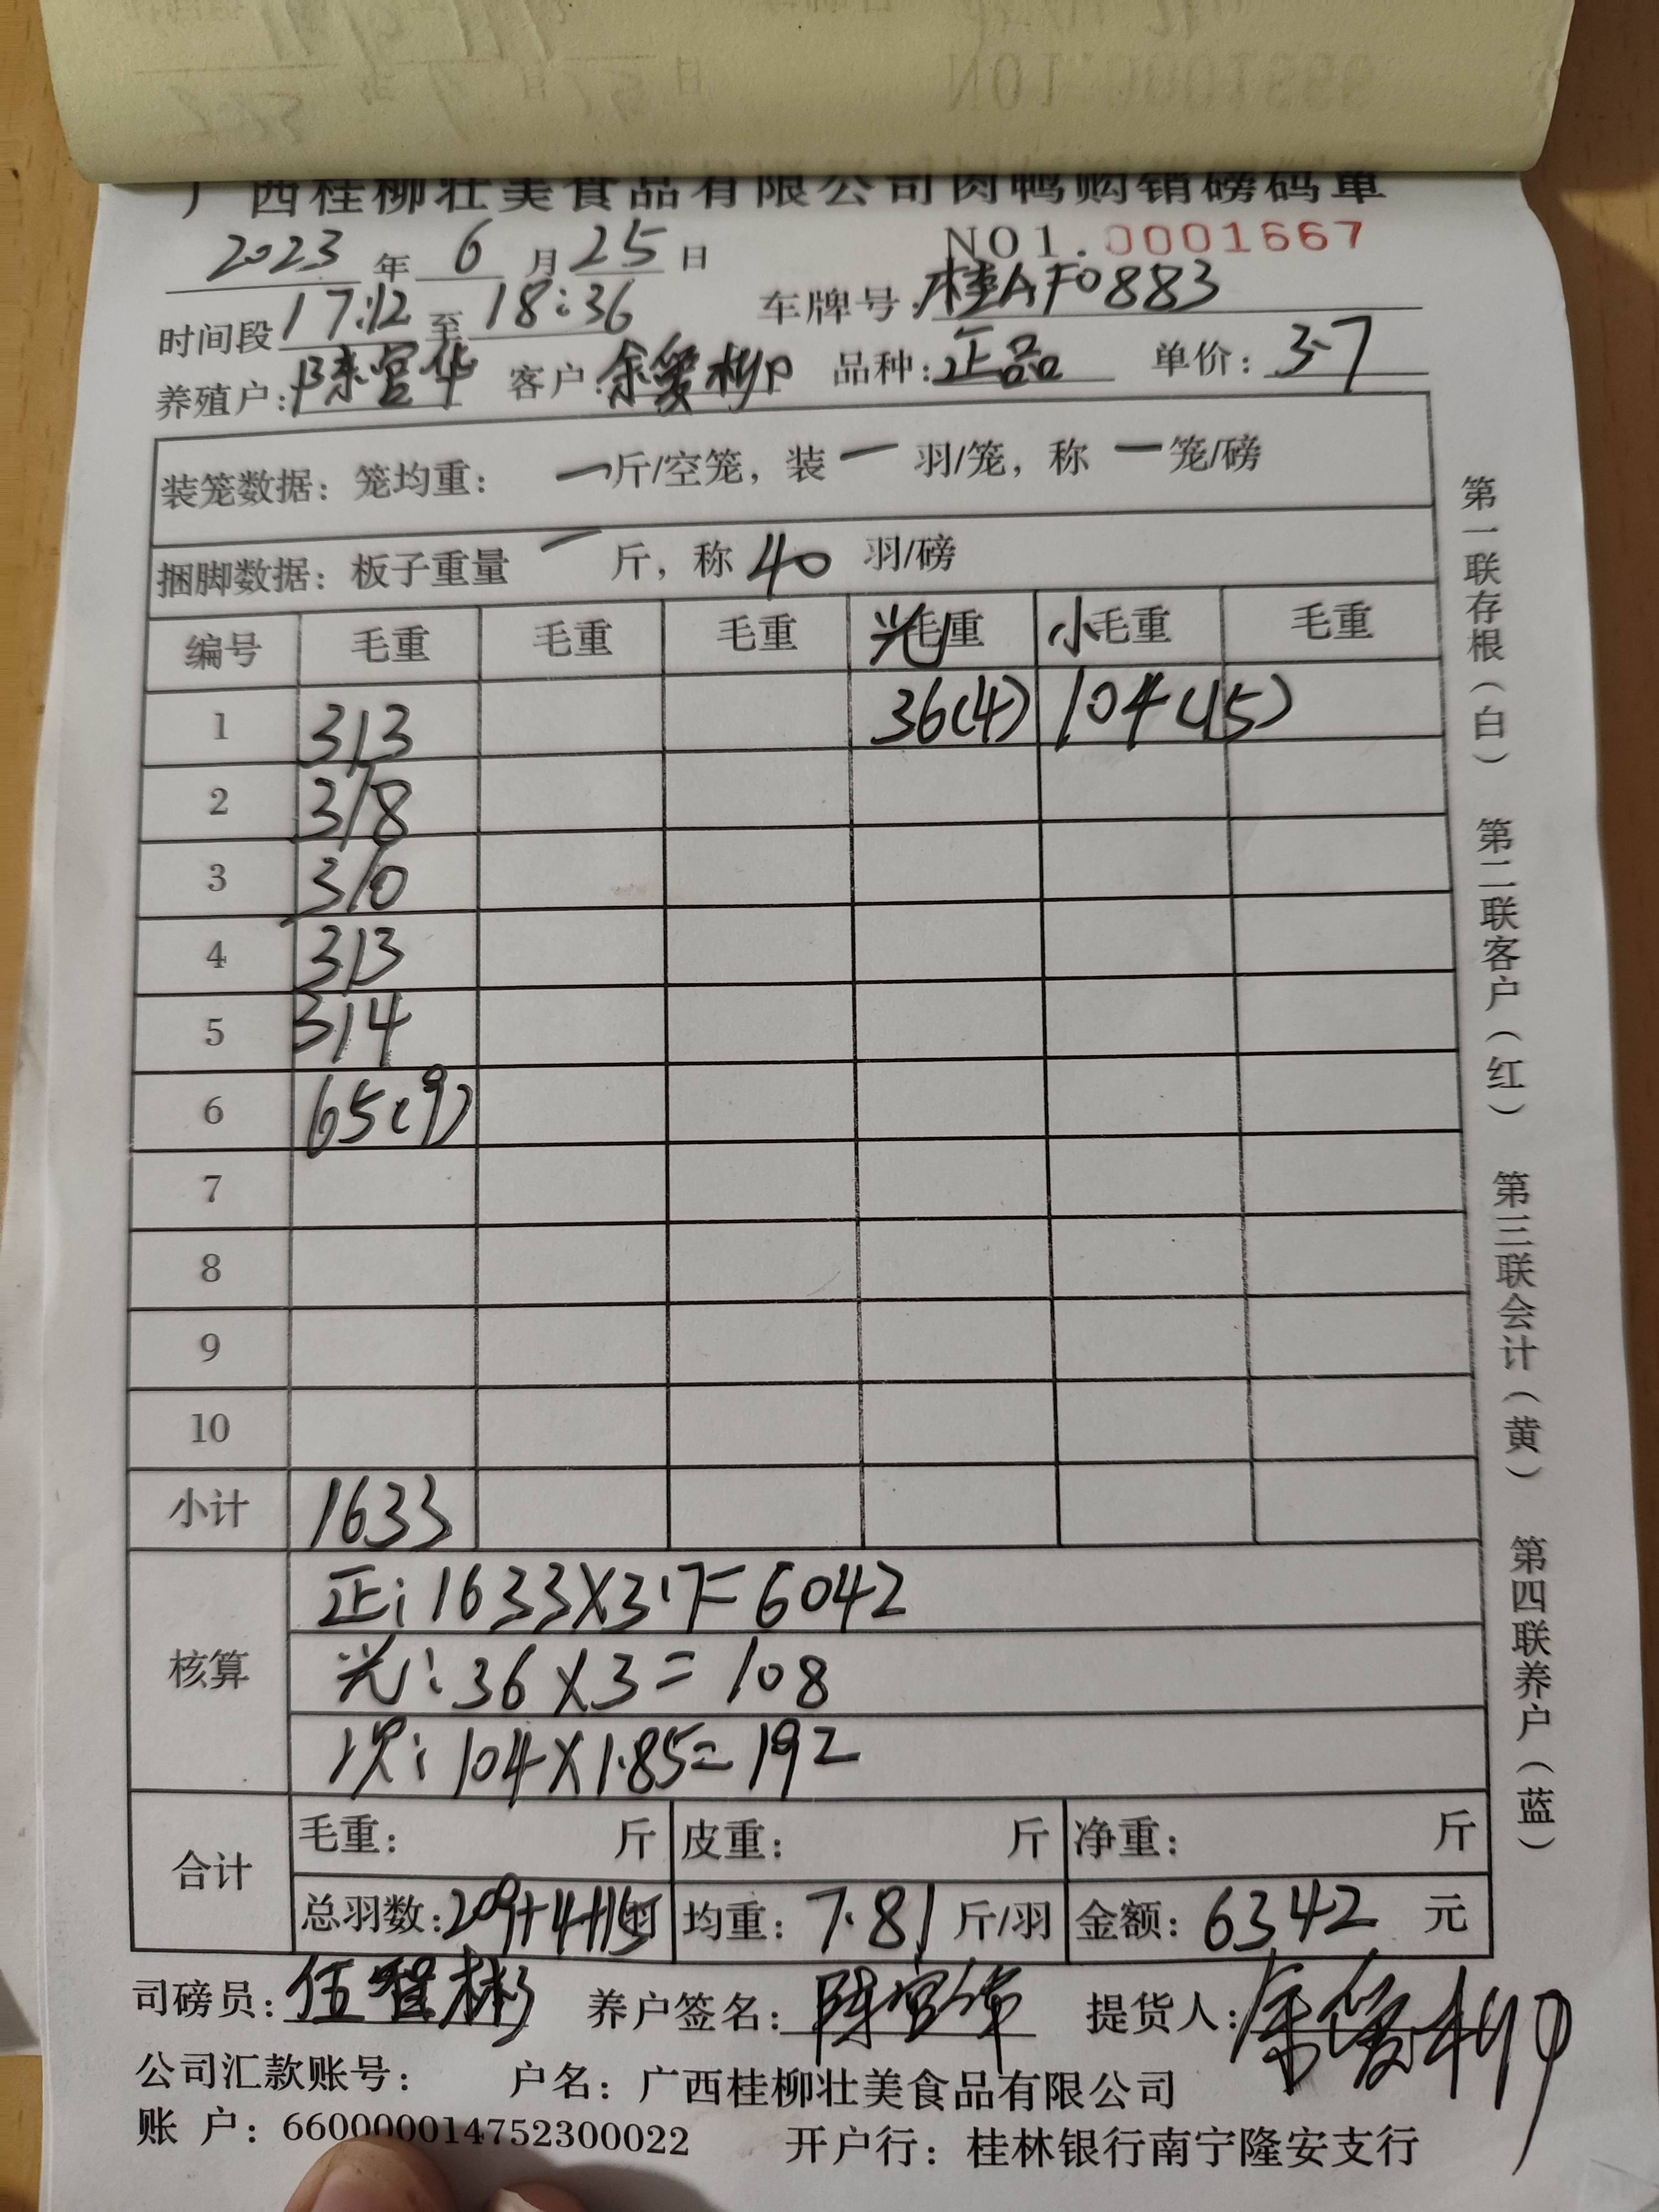 广西桂柳壮美食品有限公司肉鸭购销磅码单
2023年6月25日 NO1.0001667
时间段17:12至18:36 车牌号:桂AF0883
养殖户:陈宫华 客户:余爱柳 品种:正品 单价:3.7
装笼数据:笼均重: 一斤/空笼,装一羽/笼,称一笼/磅
捆脚数据:板子重量一斤,称40羽/磅
编号 毛重 毛重 毛重 光毛重 小毛重 毛重
1 313 36(4) 104(15)
2 318
3 310
4 313
5 314
6 65(9)
7
8
9
10
小计 1633
核算
正:1633×3.7=6042
光:36×3=108
次:104×1.85=192
合计
毛重: 斤 皮重: 斤 净重: 斤
总羽数:209+4+15羽 均重:7.81斤/羽 金额:6342元
司磅员:伍 彬 养户签名:陈宫华 提货人:余爱柳
公司汇款账号: 户名:广西桂柳壮美食品有限公司
账 户:660000014752300022 开户行:桂林银行南宁隆安支行
第一联存根(白) 第二联客户(红) 第三联会计(黄) 第四联养户(蓝)